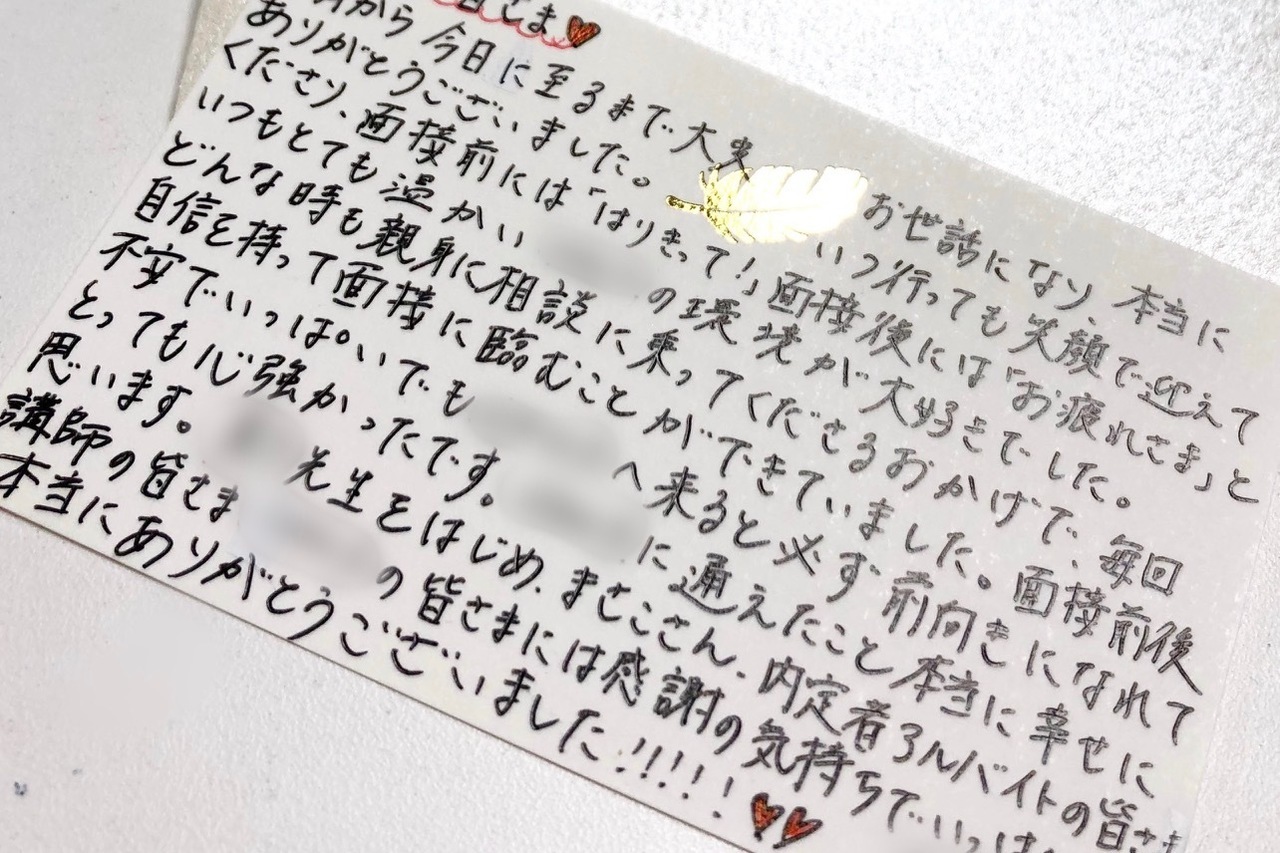 さま♥
から 今日に至るまで、大変お世話になり、本当に
ありがとうございました。いつ行っても笑顔で迎えて
くださり、面接前には「はりきって!」面接後には「お疲れさま」と
いつもとても温かい の環境が大好きでした。
どんな時も親身に相談に乗ってくださるおかげで、毎回
自信を持って面接に臨むことができていました。面接前後
不安でいっぱいでも へ来ると必ず前向きになれて
とっても心強かったです。 に通えたこと本当に幸せに
思います。 先生をはじめ、まさこさん、内定者アルバイトの皆さま
講師の皆さま の皆さまには感謝の気持ちでいっぱ
本当にありがとうございました!!!!!♥♥